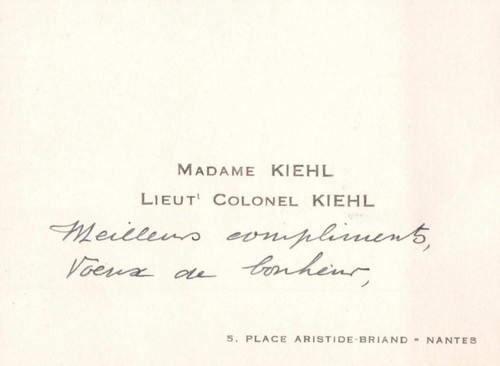 MADAME KIEHL
LIEUTᵗ COLONEL KIEHL
Meilleurs compliments,
Voeux de bonheur,
5. PLACE ARISTIDE-BRIAND - NANTES